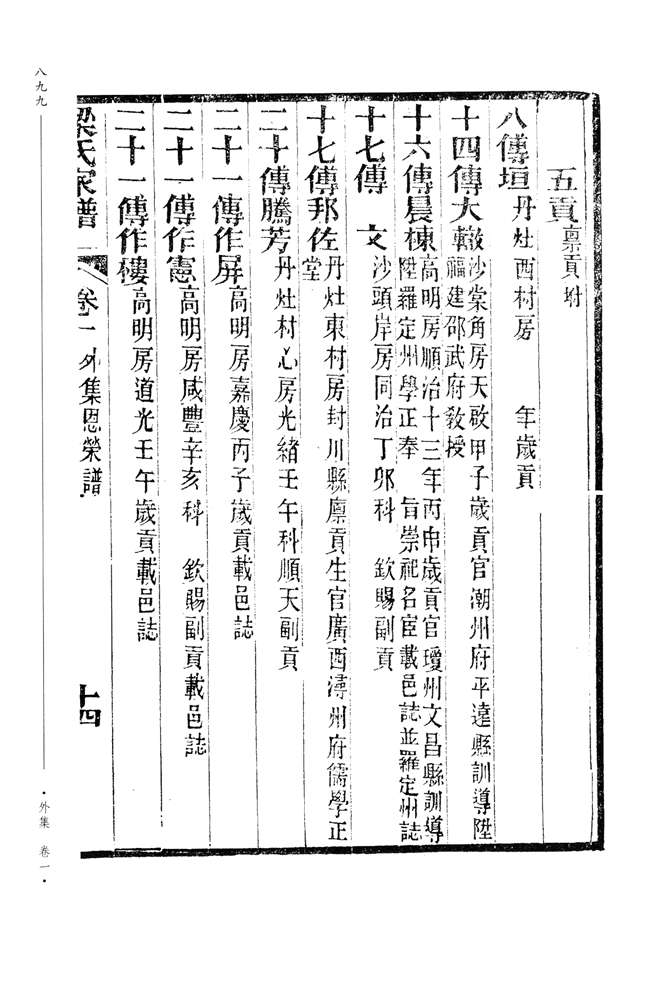 五貢廪貢坿
八傳垣丹灶西村房　年歲貢
十四傳大轍沙棠角房天啟甲子歲貢官潮州府平遠縣訓導陞
福建邵武府敎授
十六傳晨棟高明房順治十三年丙申歲貢官瓊州文昌縣訓導
陞羅定州學正奉　旨崇祀名宦載邑誌並羅定州誌
十七傳　文沙頭岸房同治丁卯科　欽賜副貢
十七傳邦佐丹灶東村房封川縣廪貢生官廣西潯州府儒學正
堂
二十傳騰芳丹灶村心房光緒壬午科順天副貢
二十一傳作屏高明房嘉慶丙子歲貢載邑誌
二十一傳作憲高明房咸豐辛亥科　欽賜副貢載邑誌
二十一傳作樓高明房道光壬午歲貢載邑誌
梁氏家譜　卷一　外集恩榮譜　十四
八九九　·外集　卷一·